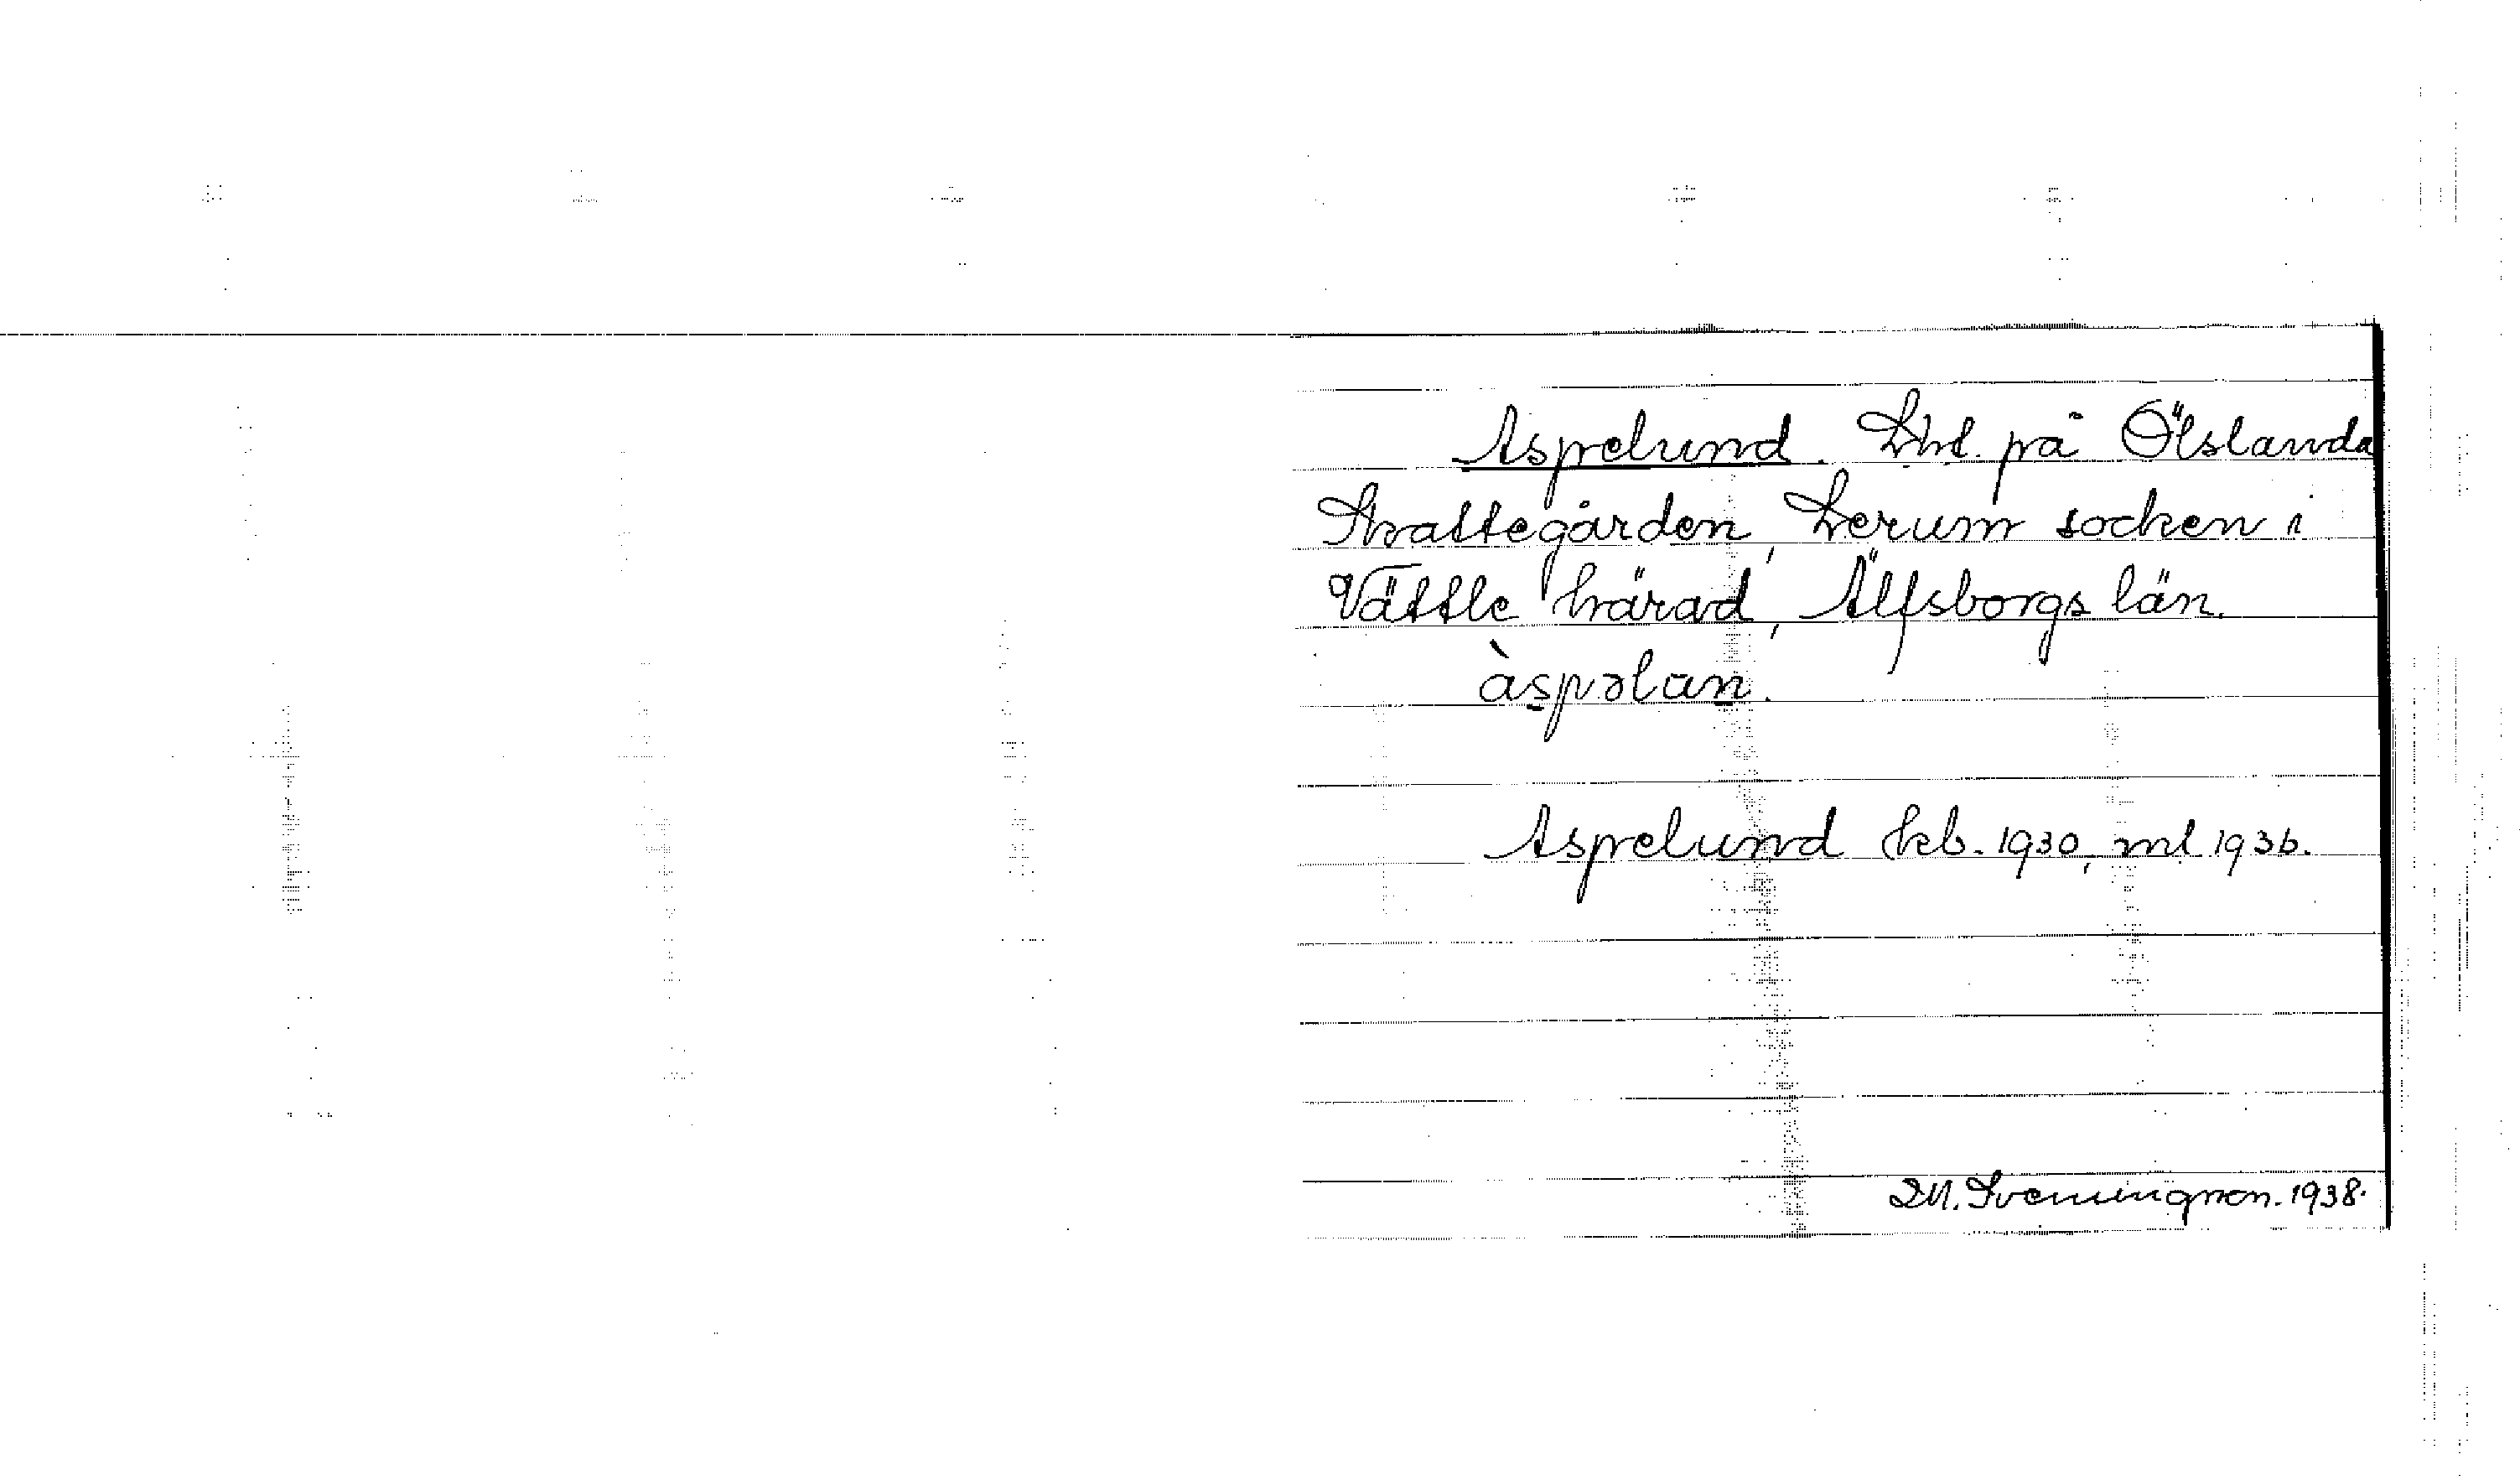 Aspelund. Lht. på Ölslanda
Skattegården, Lerum socken i
Vättle härad, Älfsborgs län.
àspəlan.
Aspelund hfb. 1930, ml 1936.
Svenungsson. 1938.